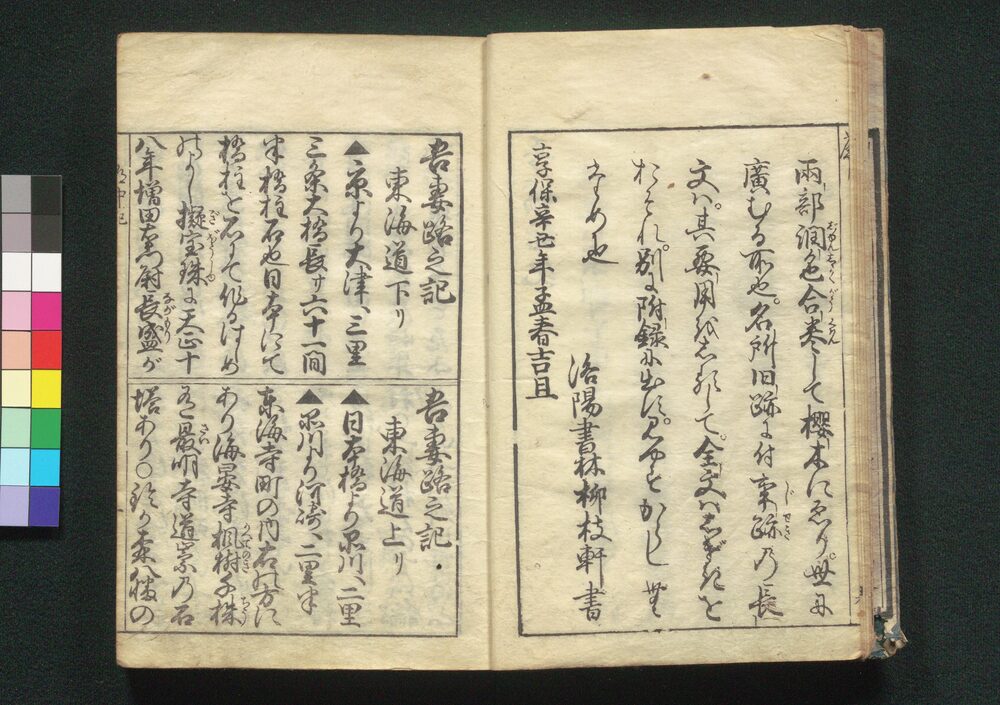 兩部潤色合卷して櫻木にゑり世に
廣むる所也名所旧跡に付事跡乃長
文ハ其要用をしるして全文ハこと〴〵を
別に附録に出す見る
也
洛陽書林柳枝軒書
享保辛丑年孟春吉旦
吾妻路之記
東海道下り
▲京より大津へ三里
三条大橋長サ六十一間
半橋柱石也日本にて
橋柱を石にて作るはじめ
のよし擬宝珠に天正十
八年増田右衛門尉長盛が
吾妻路之記
東海道上り
▲日本橋より品川へ二里
▲品川より河崎へ二里半
東海寺町の内右の方に
あり海晏寺楓樹千株
有最明寺道崇乃石
塔あり○鈴か森八幡の